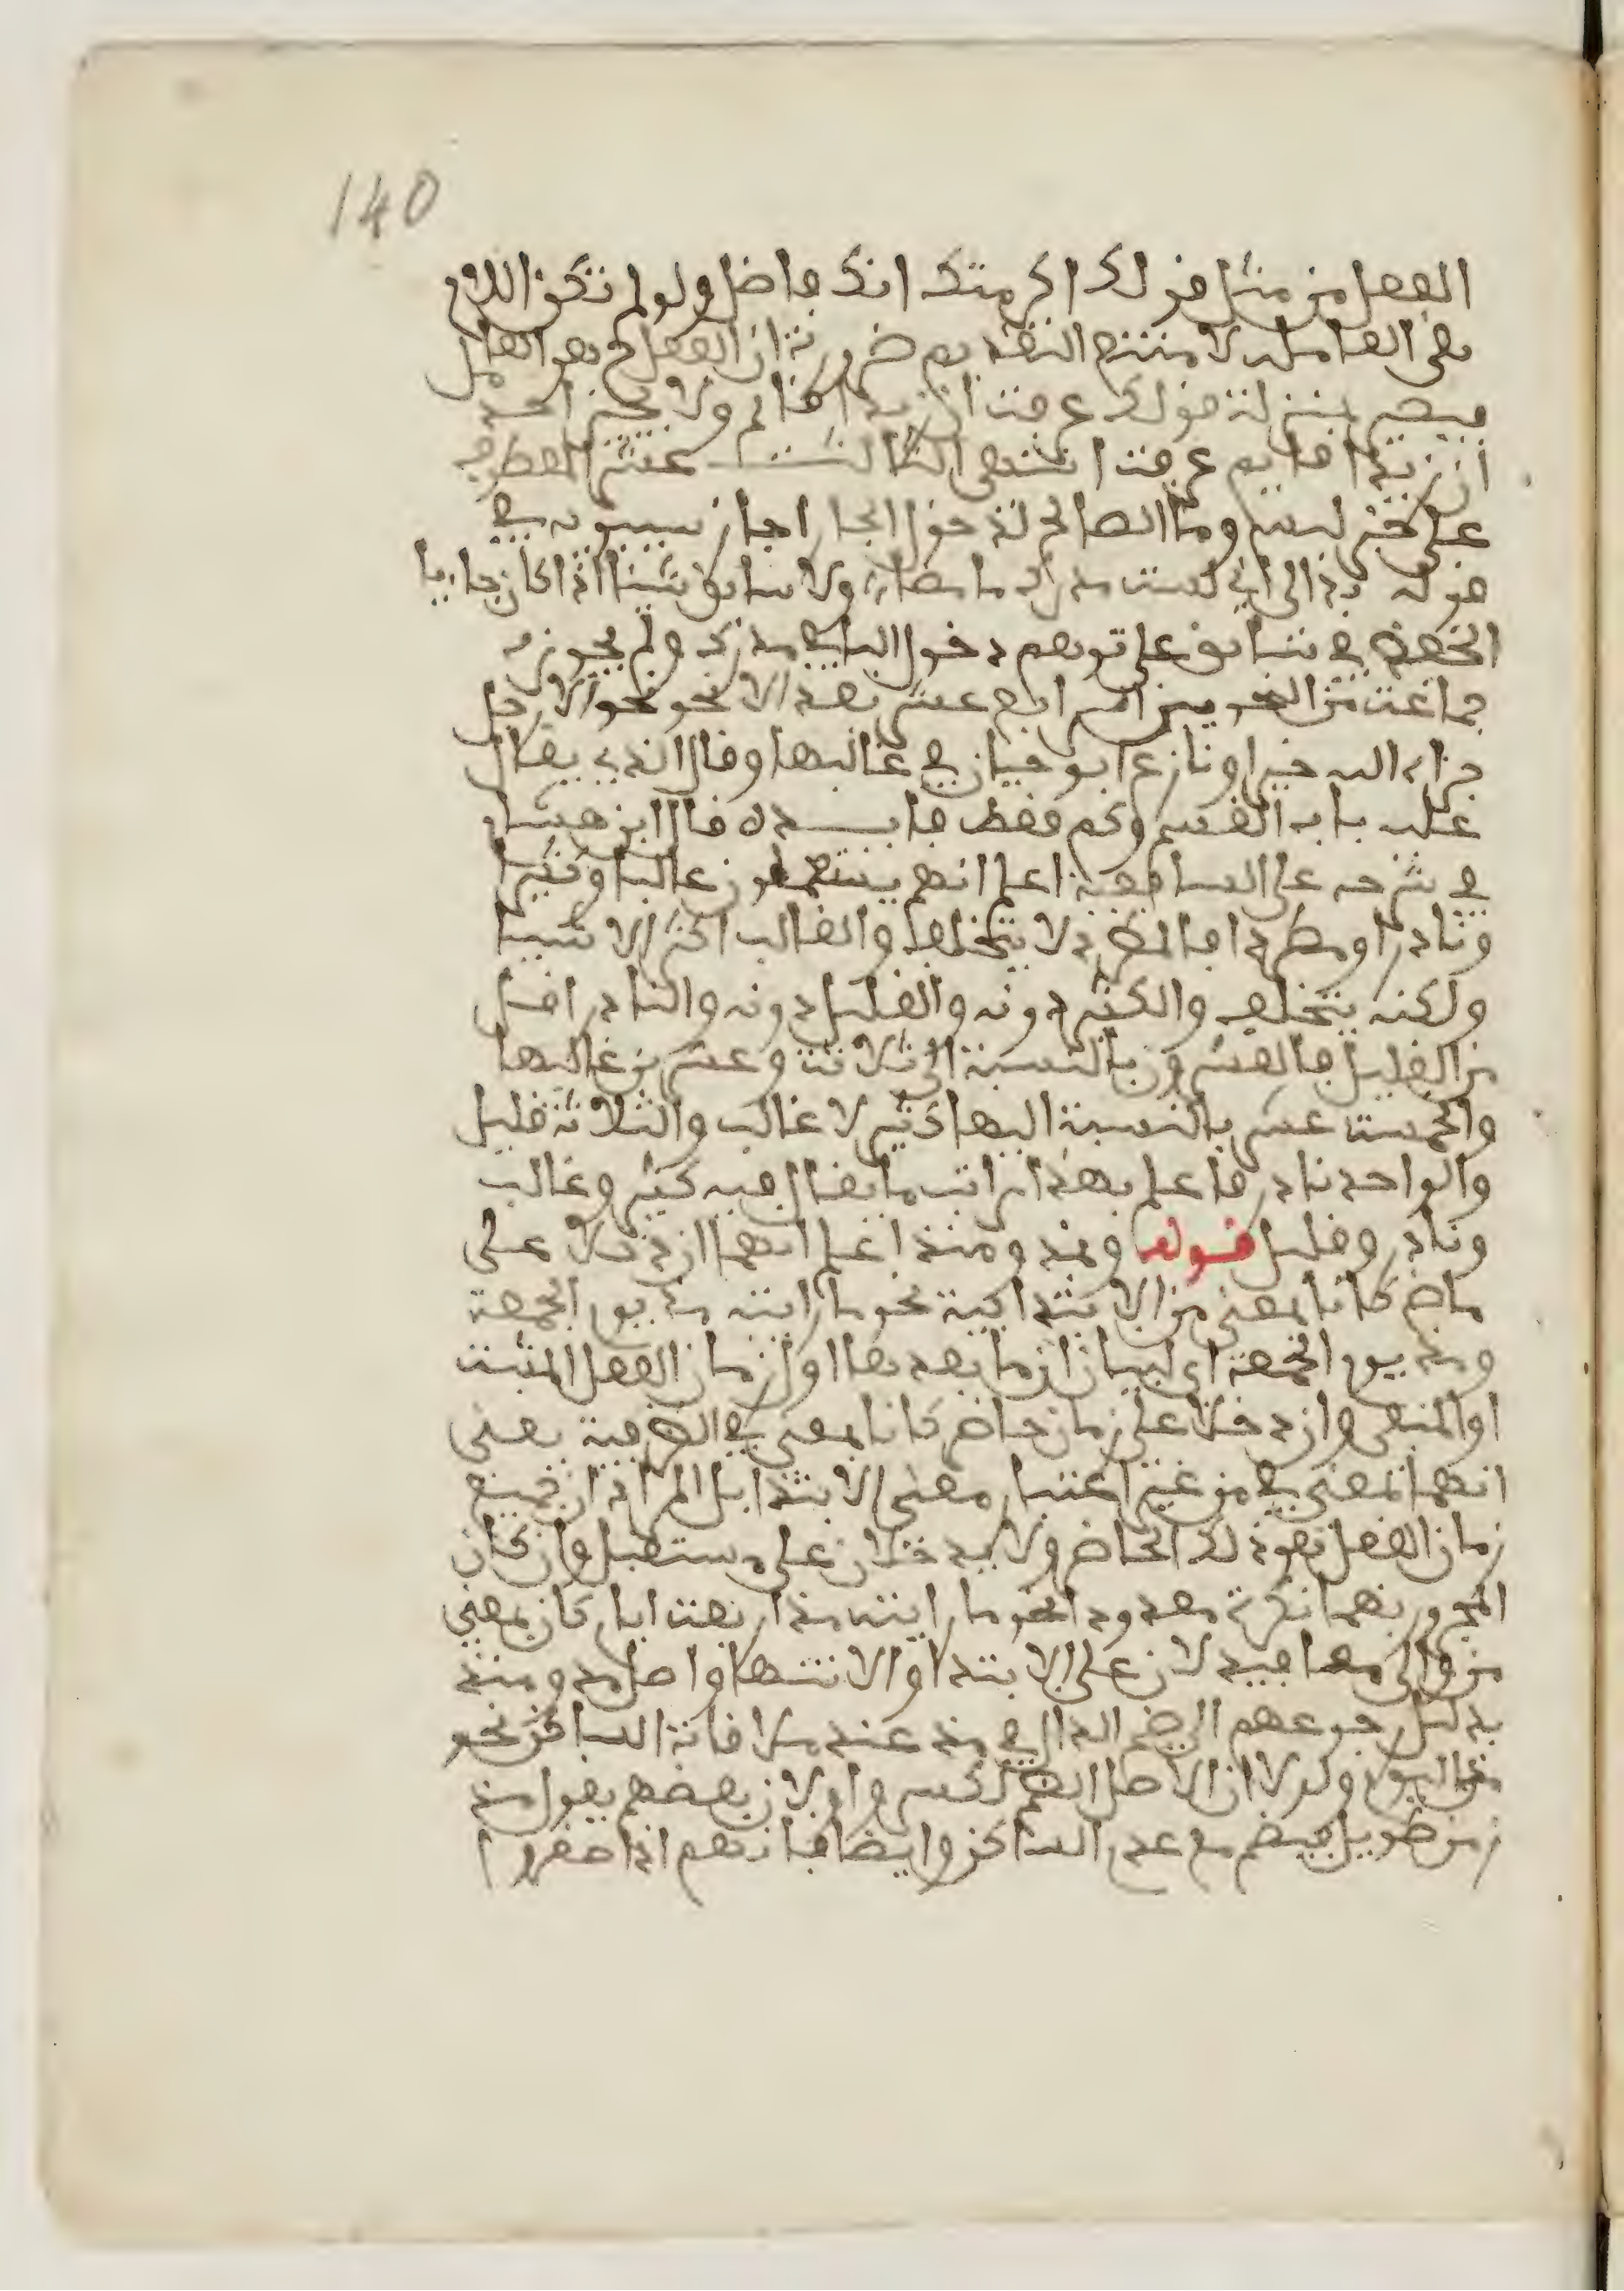 140
الفعل من مثل قولك اكرمتك انك فاضل ولو لم تكن اللام
هي العاملة لامتنع التقديم ضرورة ان الفعل ح هو العامل
فيصير بمنزلة قولك عرفت ان زيدا قائم ولا يجيز احد
ان زيدا قايم عرفت انتهى الثالث عشر العطف
على خبر ليس وما الصالح لدخول الجار اجاز سيبويه في
قوله بدا لى اني لست مدرك ما مضى ولا سابق شيئا اذا كان جاييا
الخفض في سابق على توهم دخول الباء في مدرك ولم يجوزه
جماعة من النحويين الرابع عشر بعد الا نحو نحو الا رجل
جزاه الله خيرا ونازع ابو حيان في غالبها وقال الذي يقال
عليه بابه القسم وكم فقط فايدة قال ابن هشام
في شرحه على اعلم انهم يستعملون غالبا وكثيرا
ونادرا ومطردا فالمطرد لا يتخلف والغالب اكثر الاشيا
ولكنه يتخلف والكثير دونه والقليل دونه والنادر اقل
من القليل فالعشرون بالنسبة الى ثلاثة وعشرين غالبها
والخمسة عشر بالنسبة اليها كثير لا غالب والثلاثة قليل
والواحد نادر فاعلم بهذا مراتب ما يقال فيه كثير وغالب
ونادر وقليل قوله ومذ ومنذ اعلم انهما ان دخلا على
ماض كانا بمعنى من الابتدائية نحو ما رايته مذ يوم الجمعة
ومنذ يوم الجمعة اي لبيان ان ما بعدها اول زمان الفعل المثبت
او المنفى وان دخلا على زمان حاضر كانا بمعنى في الظرفية يعنى
انهما بمعنى في من غير اعتبار معنى الابتدا بل المراد ان جميع
زمان الفعل هو ذلك الحاضر ولا يدخلان على مستقبل وان كان
المجرور بهما نكرة معدودا نحو ما رايته مذ اربعة ايام كان بمعنى
من والى معا فيدلان على الابتدا والانتها واصل مذ ومنذ
بدليل رجوعهم الى ضم الدال في مذ عند ملاقاة الساكن نحو
مذ اليوم ولولا ان الاصل الضم لكسروا ولان بعضهم يقول مذ
زمن طويل فيضم مع عدم الساكن وايضا فانهم اذا صغروا